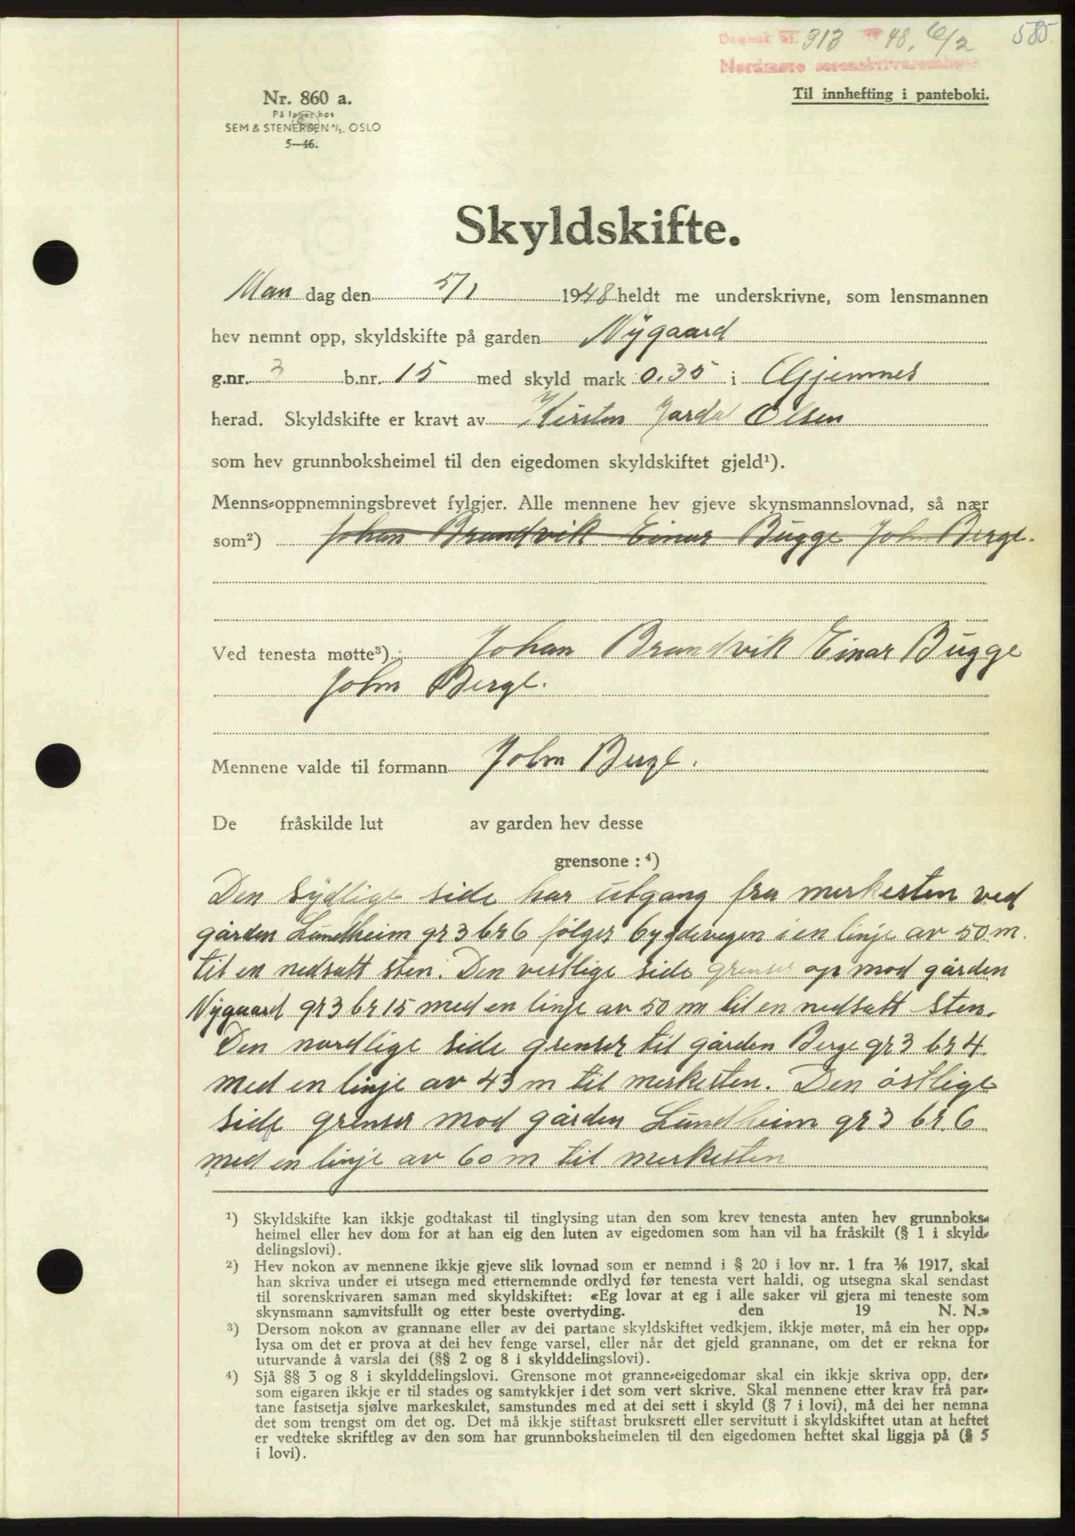 Dagbok nr. 313 19 48, 6/2 585
Nordmøre sorenskriverembede
Nr. 860 a.
På lager hos
SEM & STENERSEN A/S. OSLO
5—46.
Til innhefting i panteboki.
Skyldskifte.
Man dag den 5/1 1948 heldt me underskrivne, som lensmannen
hev nemnt opp, skyldskifte på garden Nygaard
g.nr. 3 b.nr. 15 med skyld mark 0.35 i Gjemnes
herad. Skyldskifte er kravt av Kirsten Jardal Olsen
som hev grunnboksheimel til den eigedomen skyldskiftet gjeld¹).
Menns-oppnemningsbrevet fylgjer. Alle mennene hev gjeve skynsmannslovnad, så nær
som²) Johan Brandvik Einar Bugge John Berge.
Ved tenesta møtte³) : Johan Brandvik Einar Bugge
John Berge.
Mennene valde til formann John Berge.
De fråskilde lut av garden hev desse
grensone : ⁴)
Den sydlige side har utgang fra merkesten ved
gården Lundheim gr 3 br 6 følger bygdevegen i en linje av 50 m.
til en nedsatt sten. Den vestlige side grenser op mod gården
Nygaard gr 3 br 15 med en linje av 50 m til en nedsatt sten.
Den nordlige side grenser til gården Berge gr 3 br 4
med en linje av 43 m til merkesten. Den østlige
side grenser mod gården Lundheim gr 3 br. 6
med en linje av 60 m til merkesten
¹) Skyldskifte kan ikkje godtakast til tinglysing utan den som krev tenesta anten hev grunnboks-
heimel eller hev dom for at han eig den luten av eigedomen som han vil ha fråskilt (§ 1 i skyld-
delingslovi).
²) Hev nokon av mennene ikkje gjeve slik lovnad som er nemnd i § 20 i lov nr. 1 fra 1/6 1917, skal
han skriva under ei utsegn med etternemnde ordlyd før tenesta vert haldi, og utsegna skal sendast
til sorenskrivaren saman med skyldskiftet: «Eg lovar at eg i alle saker vil gjera mi teneste som
skynsmann samvitsfullt og etter beste overtyding. den 19 N. N.»
³) Dersom nokon av grannane eller av dei partane skyldskiftet vedkjem, ikkje møter, må ein her opp-
lysa om det er prova at dei hev fenge varsel, eller når det gjeld grannane, om det er rekna for
uturvande å varsla dei (§§ 2 og 8 i skylddelingslovi).
⁴) Sjå §§ 3 og 8 i skylddelingslovi. Grensone mot granne-eigedomar skal ein ikkje skriva opp, der-
som eigaren ikkje er til stades og samtykkjer i det som vert skrive. Skal mennene etter krav frå par-
tane fastsetja sjølve markeskilet, samstundes med at dei sett i skyld (§ 7 i lovi), må dei her nemna
det som trengst om det og. Det må ikkje stiftast bruksrett eller servitutt i skyldskiftet utan at heftet
er vedteke skriftleg av den som har grunnboksheimelen til den eigedomen heftet skal liggja på (§ 5
i lovi).